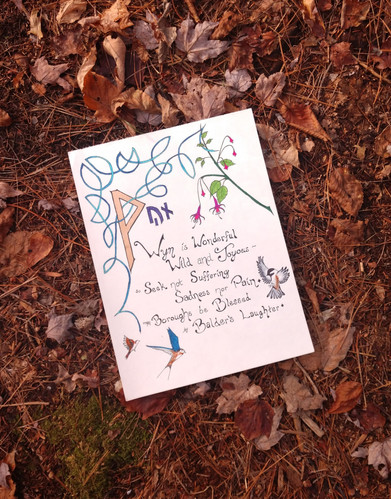 ᚹ
Wyn is Wonderful
Wild and Joyous ~
~ Seek not Suffering
Sadness nor Pain.
~ Boroughs be Blessed
Balder's Laughter.